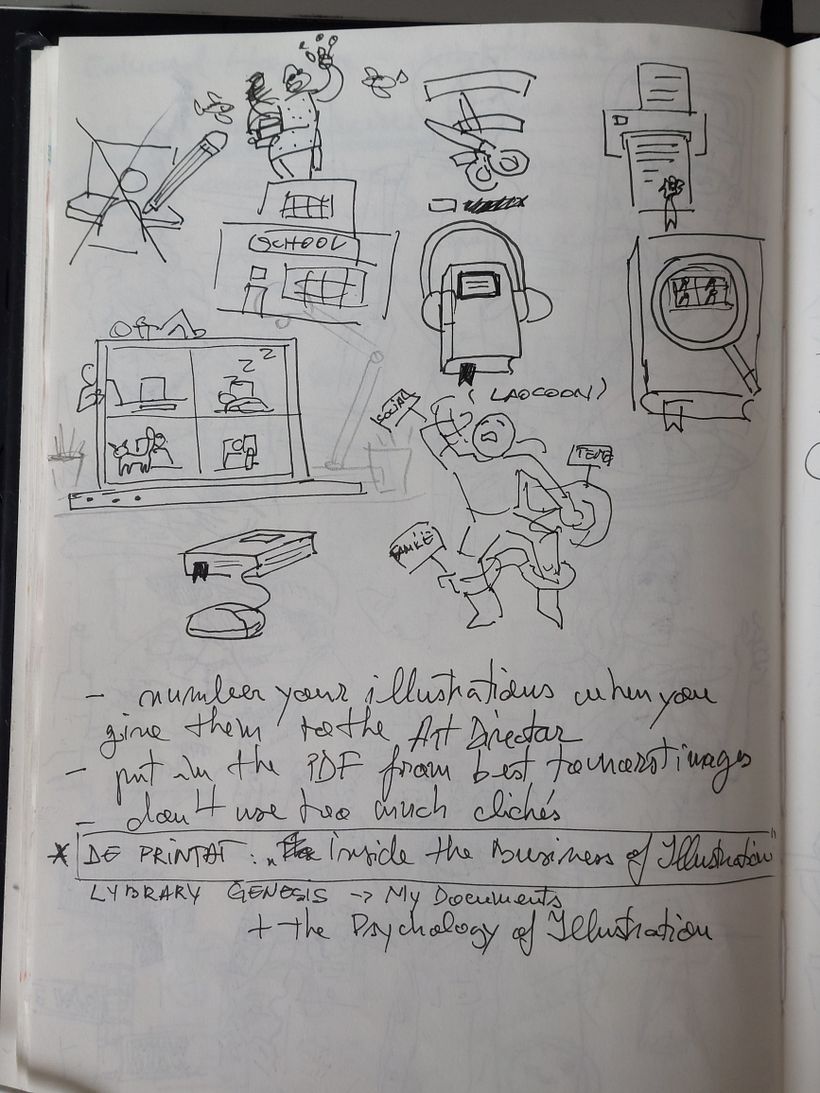 SCHOOL
(LAOCOON)
SOCIAL
Z Z Z
- number your illustrations when you
give them to the Art Director
- put in the PDF from best to worst images
- don't use too much clichés
* DE PRINTAT: „ Inside the Business of Illustration"
LYBRARY GENESIS -> My Documents
+ the Psychology of Illustration